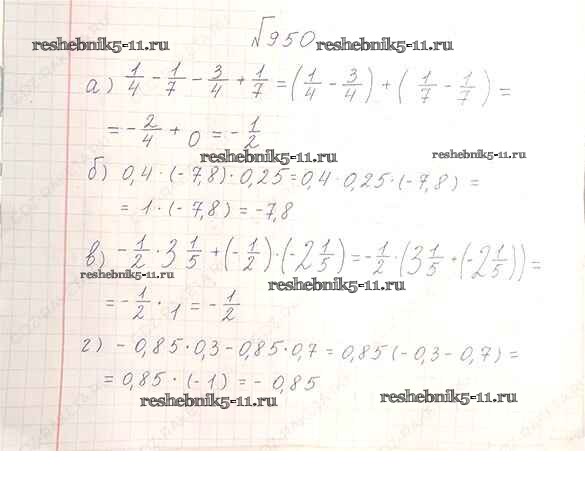 №950
reshebnik5-11.ru reshebnik5-11.ru
а) 1/4 - 1/7 - 3/4 + 1/7 = (1/4 - 3/4) + (1/7 - 1/7) =
= - 2/4 + 0 = - 1/2
reshebnik5-11.ru reshebnik5-11.ru
б) 0,4 · (-7,8) · 0,25 = 0,4 · 0,25 · (-7,8) =
= 1 · (-7,8) = -7,8
в) - 1/2 · 3 1/5 + (- 1/2) · (-2 1/5) = - 1/2 · (3 1/5 + (-2 1/5)) =
reshebnik5-11.ru reshebnik5-11.ru
= - 1/2 · 1 = - 1/2
г) - 0,85 · 0,3 - 0,85 · 0,7 = 0,85 (-0,3 - 0,7) =
= 0,85 · (-1) = - 0,85
reshebnik5-11.ru reshebnik5-11.ru